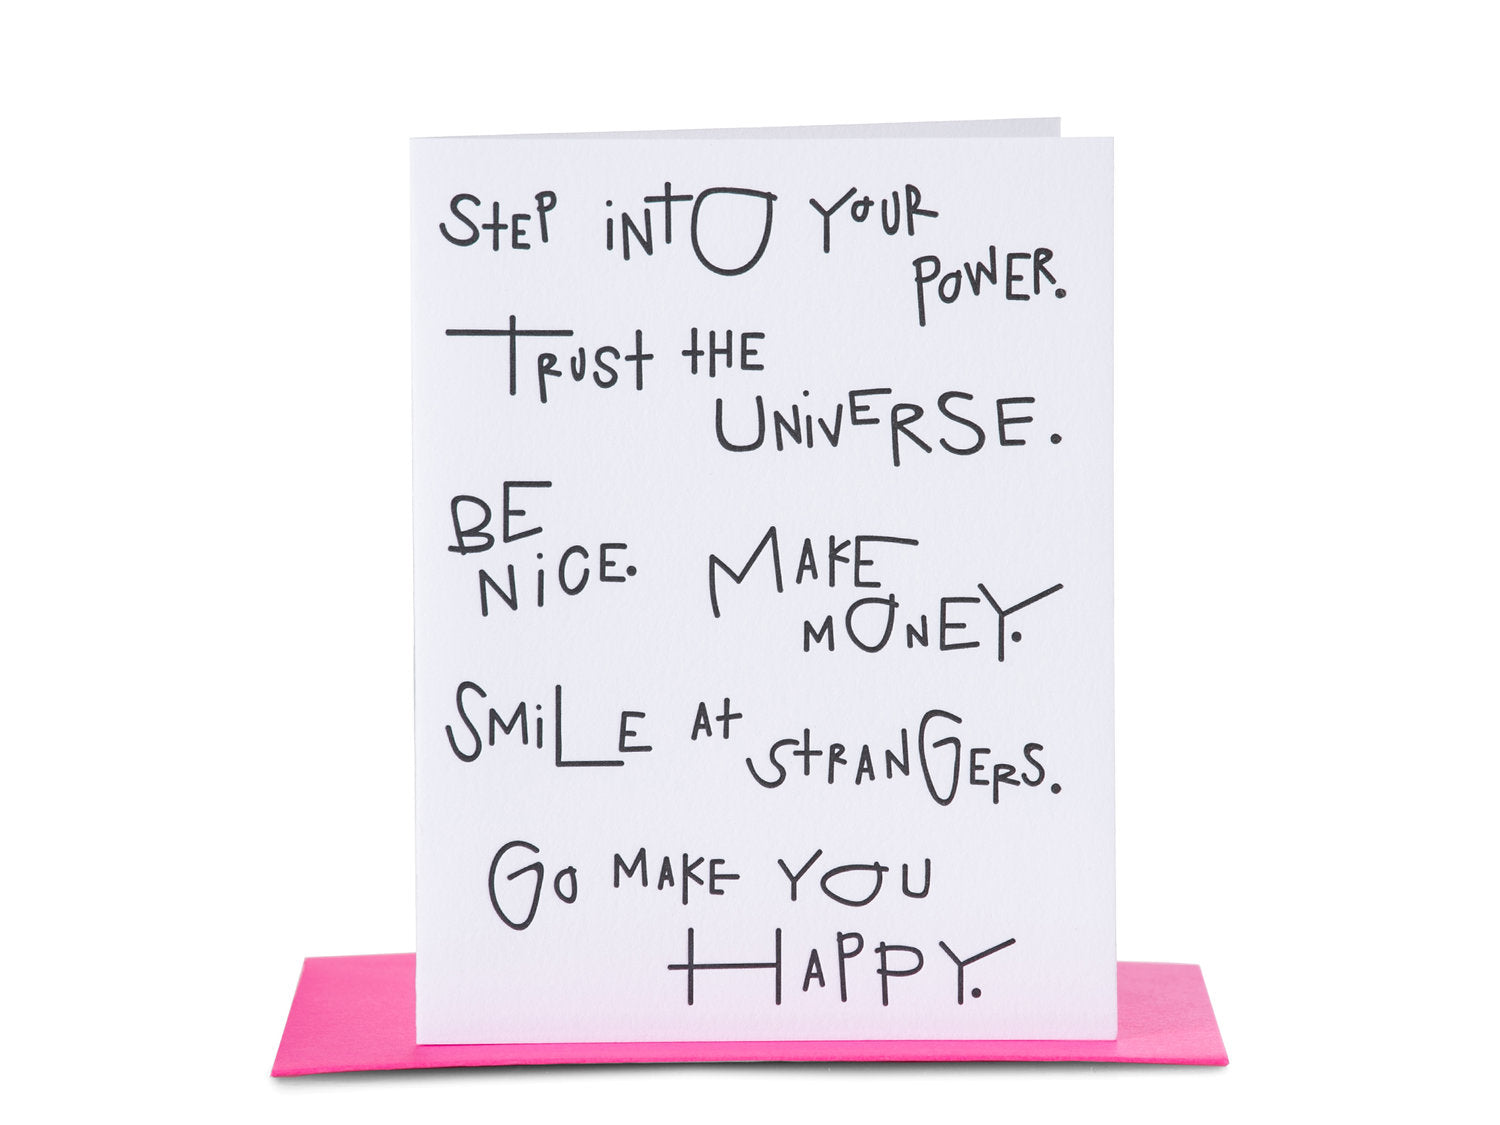 STEP iNTO YOUR
POWER.
TRUST THE
UNiVERSE.
BE
NiCE. MAKE
MONEY.
SMiLE AT STRANGERS.
GO MAKE YOU
HAPPY.